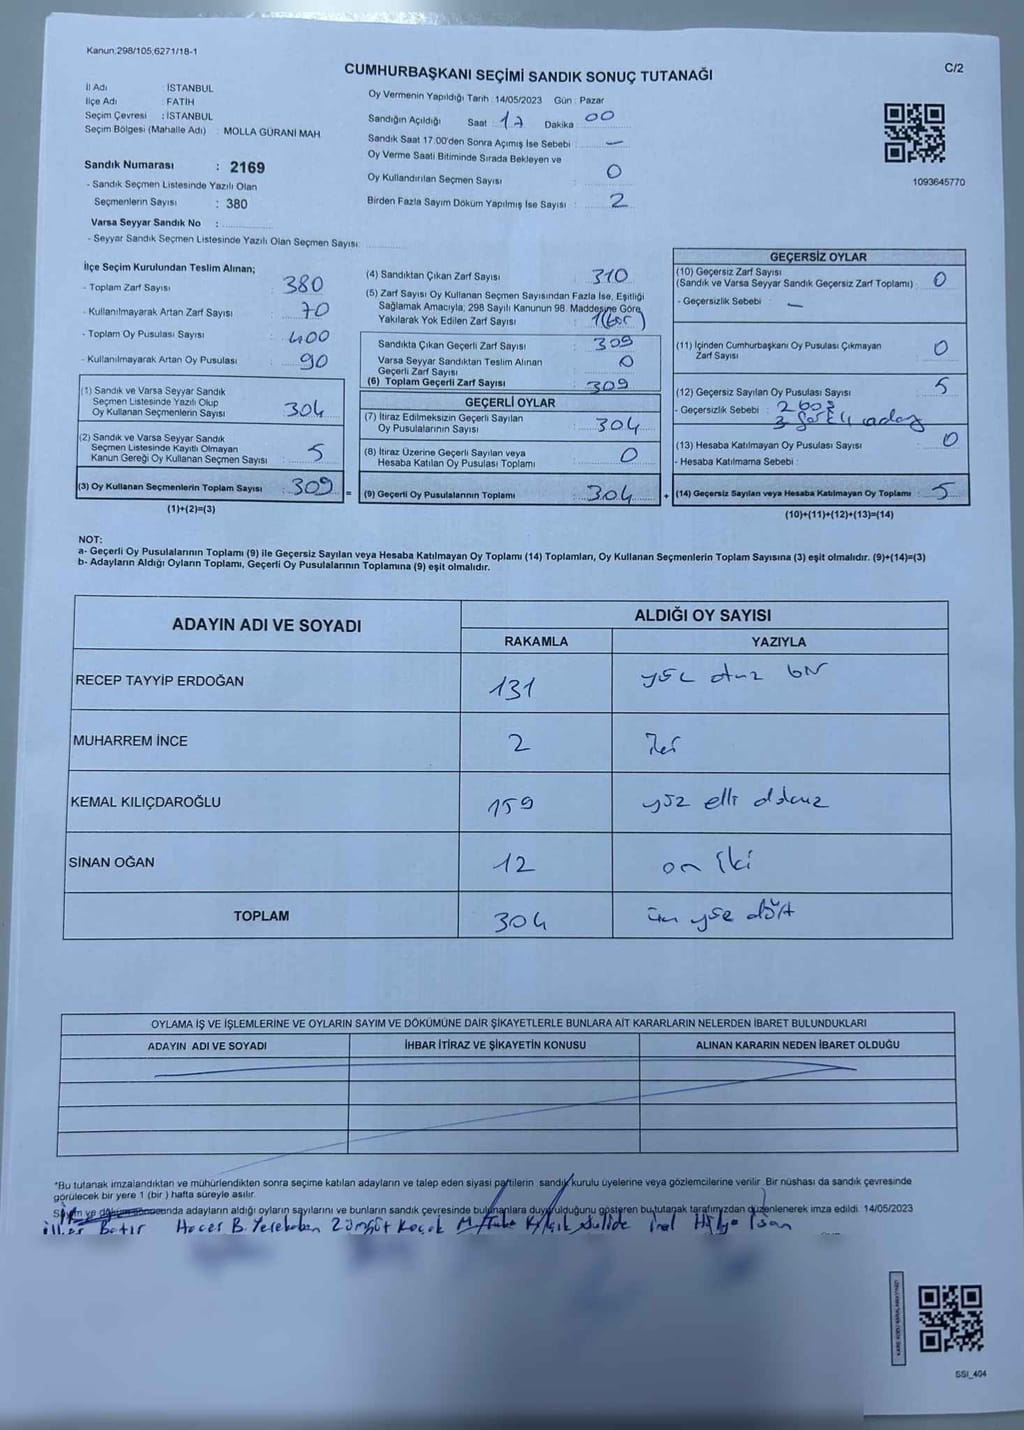 Kanun:298/105;6271/18-1
C/2
CUMHURBAŞKANI SEÇİMİ SANDIK SONUÇ TUTANAĞI
İl Adı : İSTANBUL
İlçe Adı : FATİH
Seçim Çevresi : İSTANBUL
Seçim Bölgesi (Mahalle Adı) : MOLLA GÜRANİ MAH
Sandık Numarası : 2169
- Sandık Seçmen Listesinde Yazılı Olan
Seçmenlerin Sayısı : 380
Varsa Seyyar Sandık No :
- Seyyar Sandık Seçmen Listesinde Yazılı Olan Seçmen Sayısı:
Oy Vermenin Yapıldığı Tarih : 14/05/2023 Gün : Pazar
Sandığın Açıldığı Saat : 17 Dakika : 00
Sandık Saat 17:00'den Sonra Açımış İse Sebebi : —
Oy Verme Saati Bitiminde Sırada Bekleyen ve
Oy Kullandırılan Seçmen Sayısı : 0
Birden Fazla Sayım Döküm Yapılmış İse Sayısı : 2
1093645770
İlçe Seçim Kurulundan Teslim Alınan;
- Toplam Zarf Sayısı : 380
- Kullanılmayarak Artan Zarf Sayısı : 70
- Toplam Oy Pusulası Sayısı : 400
- Kullanılmayarak Artan Oy Pusulası : 90
(1) Sandık ve Varsa Seyyar Sandık
Seçmen Listesinde Yazılı Olup
Oy Kullanan Seçmenlerin Sayısı : 304
(2) Sandık ve Varsa Seyyar Sandık
Seçmen Listesinde Kayıtlı Olmayan
Kanun Gereği Oy Kullanan Seçmen Sayısı : 5
(3) Oy Kullanan Seçmenlerin Toplam Sayısı : 309 =
(1)+(2)=(3)
(4) Sandıktan Çıkan Zarf Sayısı : 310
(5) Zarf Sayısı Oy Kullanan Seçmen Sayısından Fazla İse, Eşitliği
Sağlamak Amacıyla, 298 Sayılı Kanunun 98. Maddesine Göre
Yakılarak Yok Edilen Zarf Sayısı : 1(bir)
Sandıkta Çıkan Geçerli Zarf Sayısı : 309
Varsa Seyyar Sandıktan Teslim Alınan
Geçerli Zarf Sayısı : 0
(6) Toplam Geçerli Zarf Sayısı : 309
GEÇERLİ OYLAR
(7) İtiraz Edilmeksizin Geçerli Sayılan
Oy Pusulalarının Sayısı : 304
(8) İtiraz Üzerine Geçerli Sayılan veya
Hesaba Katılan Oy Pusulası Toplamı : 0
(9) Geçerli Oy Pusulalarının Toplamı : 304 +
GEÇERSİZ OYLAR
(10) Geçersiz Zarf Sayısı
(Sandık ve Varsa Seyyar Sandık Geçersiz Zarf Toplamı) : 0
- Geçersizlik Sebebi : —
(11) İçinden Cumhurbaşkanı Oy Pusulası Çıkmayan
Zarf Sayısı : 0
(12) Geçersiz Sayılan Oy Pusulası Sayısı : 5
- Geçersizlik Sebebi : 2 boş
3 farklı aday
(13) Hesaba Katılmayan Oy Pusulası Sayısı : 0
- Hesaba Katılmama Sebebi :
(14) Geçersiz Sayılan veya Hesaba Katılmayan Oy Toplamı : 5
(10)+(11)+(12)+(13)=(14)
NOT:
a- Geçerli Oy Pusulalarının Toplamı (9) ile Geçersiz Sayılan veya Hesaba Katılmayan Oy Toplamı (14) Toplamları, Oy Kullanan Seçmenlerin Toplam Sayısına (3) eşit olmalıdır. (9)+(14)=(3)
b- Adayların Aldığı Oyların Toplamı, Geçerli Oy Pusulalarının Toplamına (9) eşit olmalıdır.
ADAYIN ADI VE SOYADI ALDIĞI OY SAYISI
RAKAMLA YAZIYLA
RECEP TAYYİP ERDOĞAN 131 yüz otuz bir
MUHARREM İNCE 2 İki
KEMAL KILIÇDAROĞLU 159 yüz elli dokuz
SİNAN OĞAN 12 on iki
TOPLAM 304 üç yüz dört
OYLAMA İŞ VE İŞLEMLERİNE VE OYLARIN SAYIM VE DÖKÜMÜNE DAİR ŞİKAYETLERLE BUNLARA AİT KARARLARIN NELERDEN İBARET BULUNDUKLARI
ADAYIN ADI VE SOYADI İHBAR İTİRAZ VE ŞİKAYETİN KONUSU ALINAN KARARIN NEDEN İBARET OLDUĞU
*Bu tutanak imzalandıktan ve mühürlendikten sonra seçime katılan adayların ve talep eden siyasi partilerin sandık kurulu üyelerine veya gözlemcilerine verilir. Bir nüshası da sandık çevresinde
görülecek bir yere 1 (bir ) hafta süreyle asılır.
Sayım ve döküm sonucunda adayların aldığı oyların sayılarını ve bunların sandık çevresinde bulunanlara duyurulduğunu gösteren bu tutanak tarafımızdan düzenlenerek imza edildi. 14/05/2023
Hacer B. Yerekaban
SSI_404